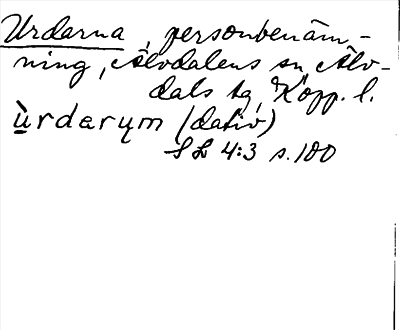 Urdarna, personbenäm-
ning, Älvdalens sn, Älv-
dals tg, Kopp. l.
ùrdarųm (dativ)
SL 4:3 s. 100